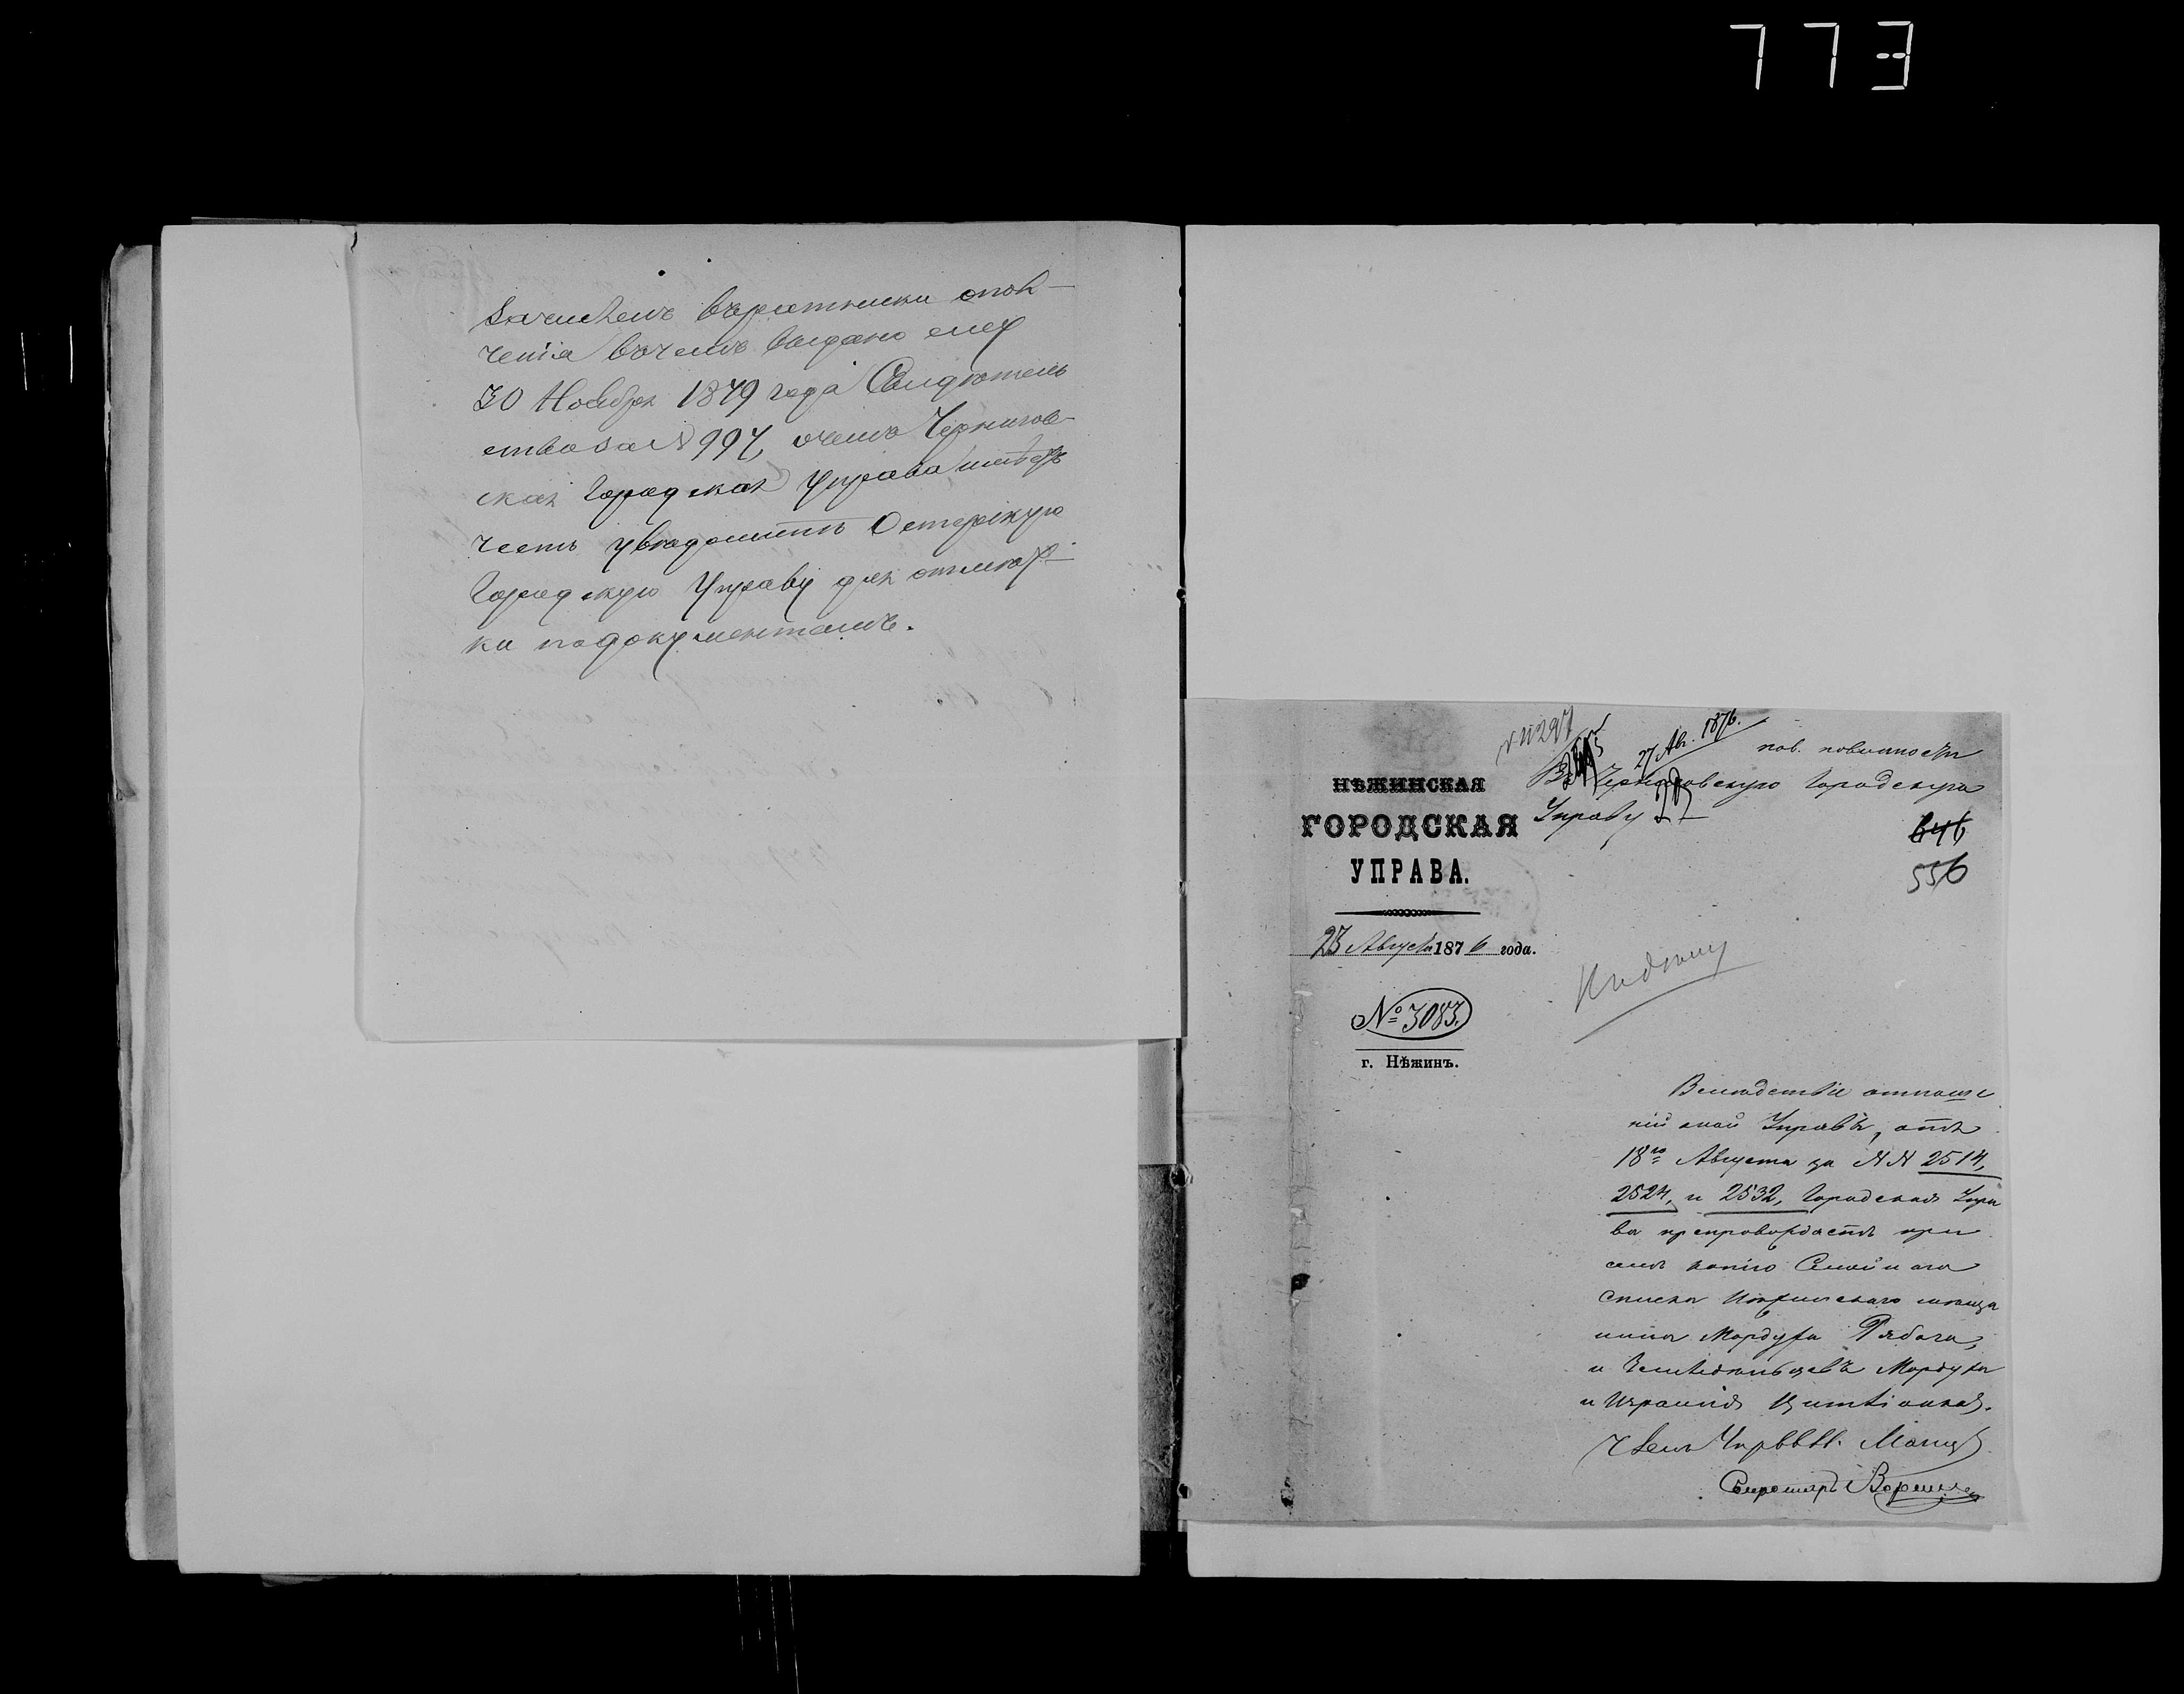 773
зачисленъ въратники опол-
ченія въчемъ выдано ему
30 Ноября 1879 года Свидѣтель
ство за № 997, очемъ Чернигов-
ская Городская Управа имѣетъ
честь увѣдомить Остерскую
Городскую Управу для отмѣт-
ки подокументамъ.
27 Авг. 1876.
пов. повинности
НѢЖИНСКАЯ
ГОРОДСКАЯ
УПРАВА.
Въ Черниговскую Городскую
Управу
646
556
23 Августа 1876 года.
№ 3083.
г. Нѣжинъ.
Вслѣдствіе отноше
ній оной Управы, отъ
18го Августа за NN 2514,
2524, и 2532, Городская Упра
ва препровождаетъ при
семъ копію Семейнаго
списка мѣща
нина Мордуха Рябого,
и Мордуха
и Израиля
Членъ Управы
Секретарь